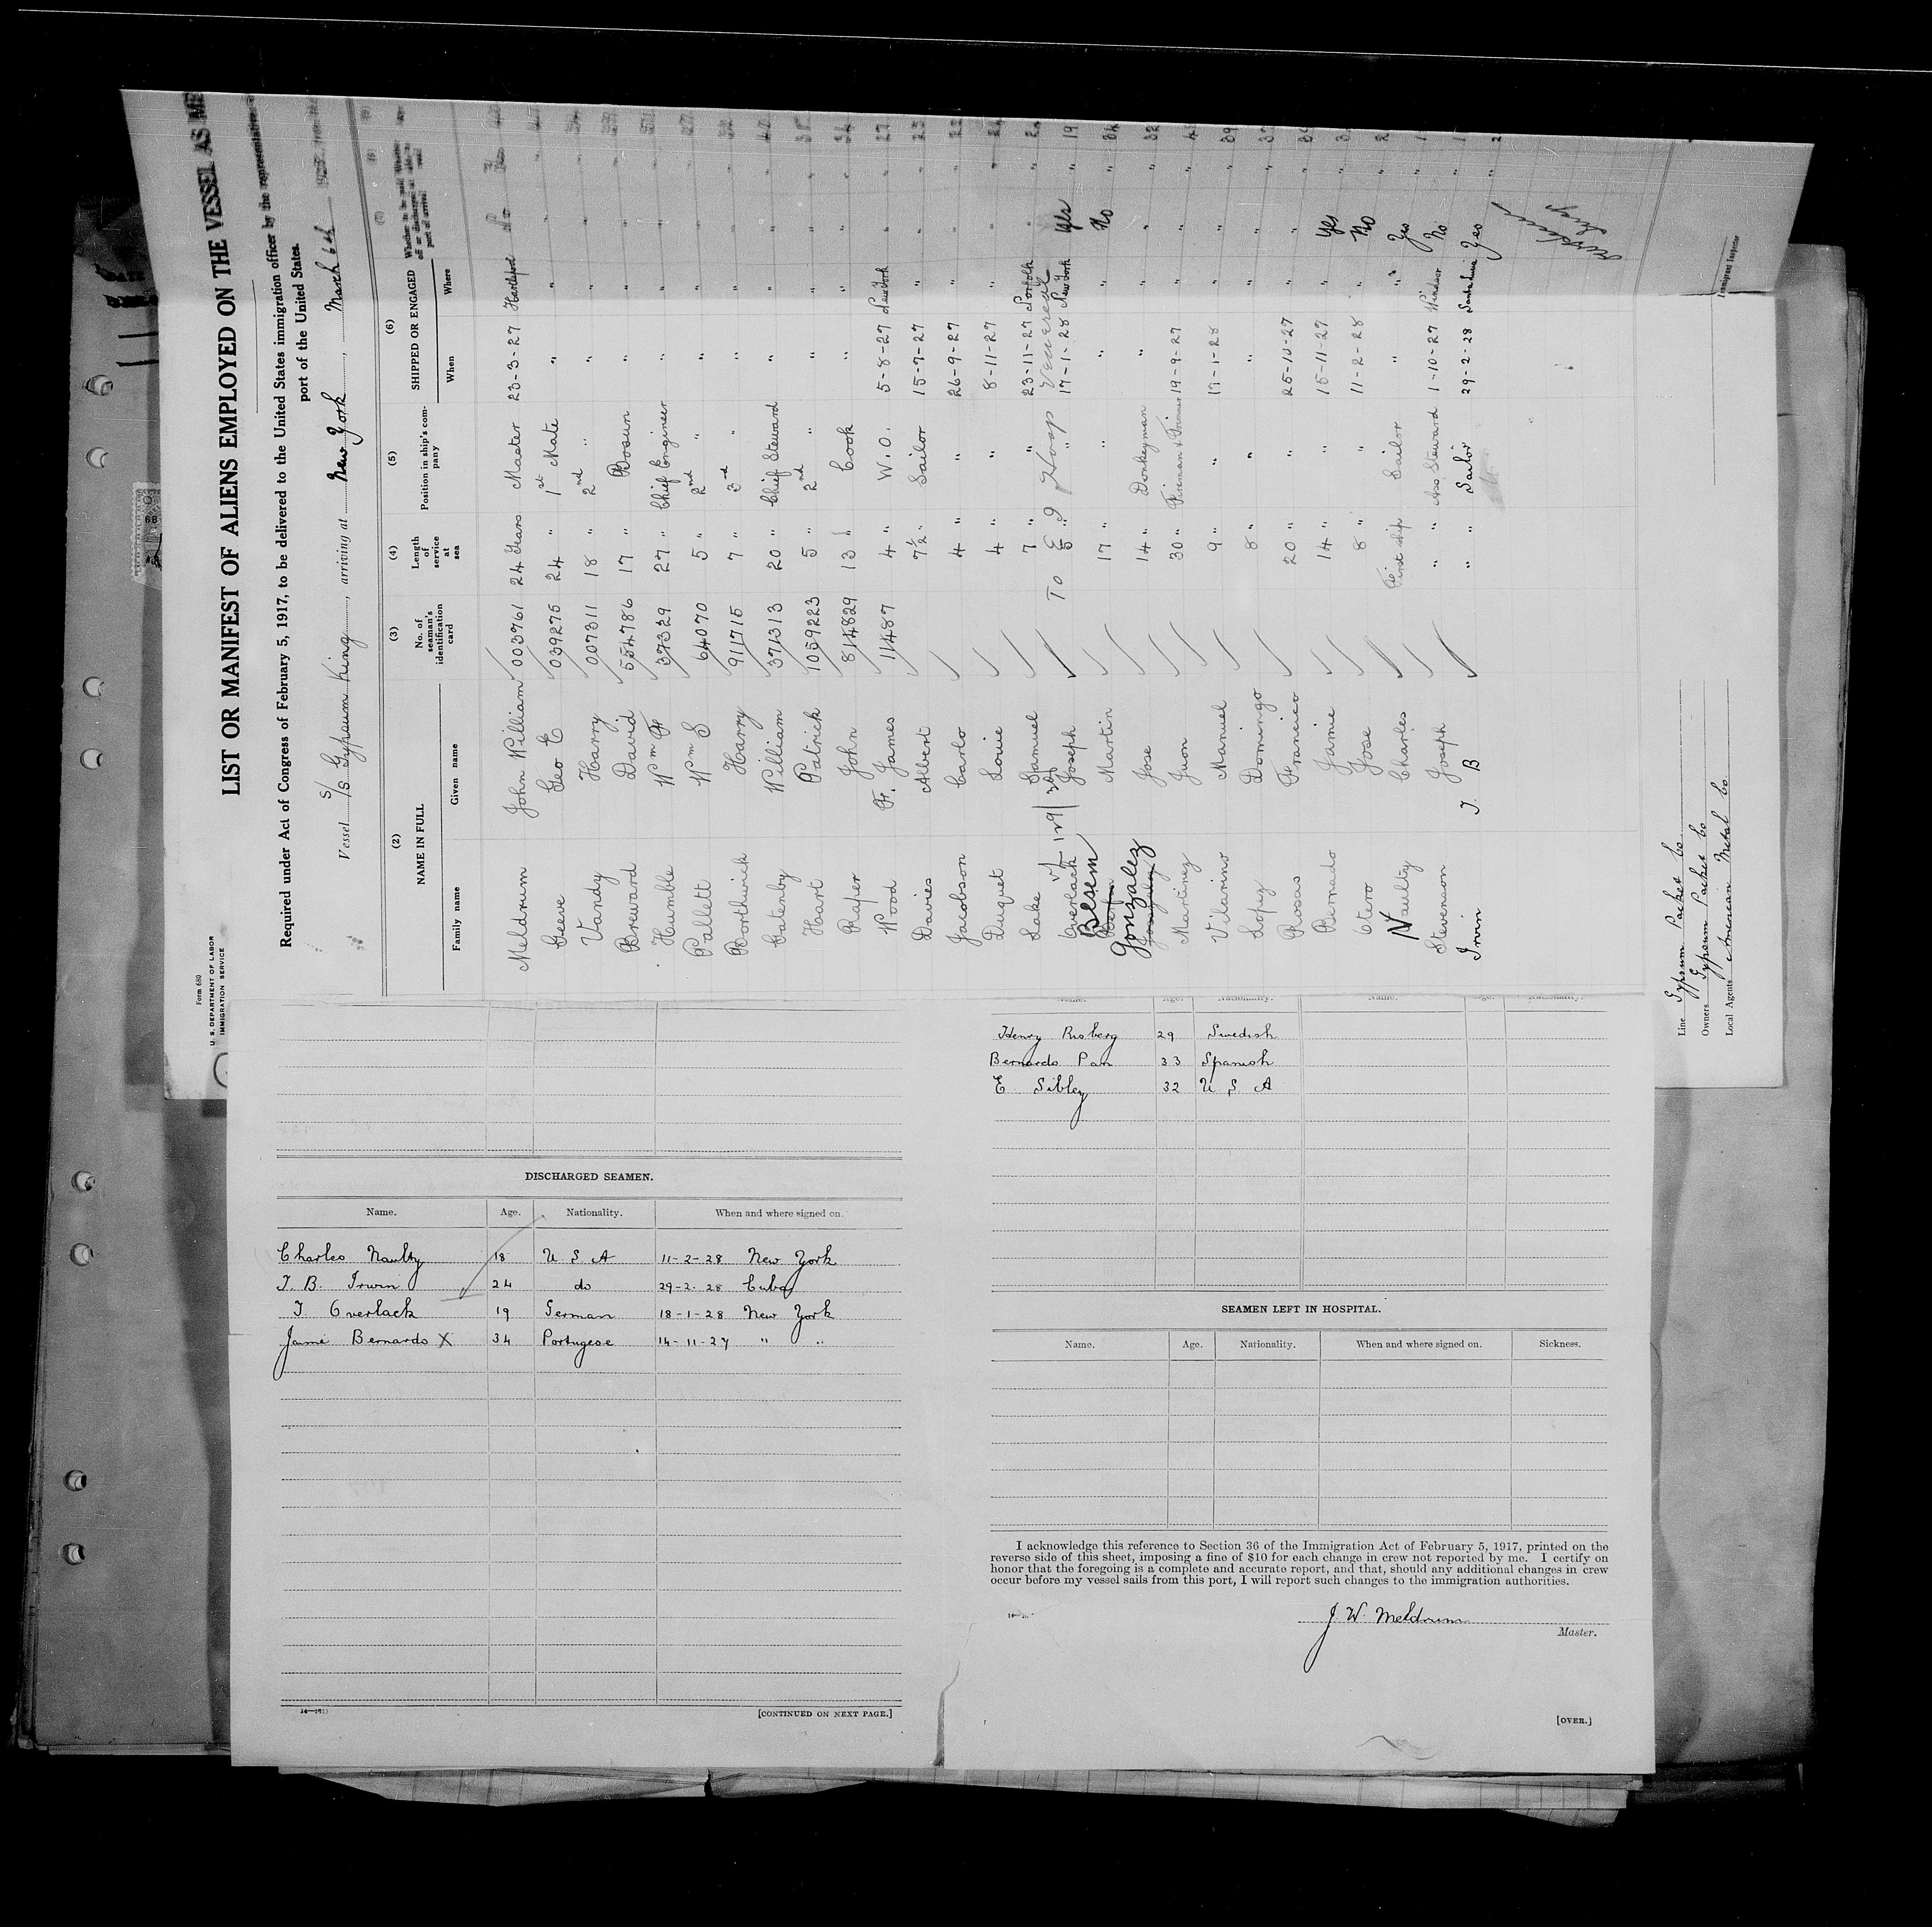 Form 680
U. S. DEPARTMENT OF LABOR
IMMIGRATION SERVICE
LIST OR MANIFEST OF ALIENS EMPLOYED ON THE VESSEL AS
Required under Act of Congress of February 5, 1917, to be delivered to the United States immigration officer by the representative
port of the United States.
Vessel S/S Gypsum King, arriving at New York, March 6th
(2) (3) (4) (5) (6)
NAME IN FULL No. of seaman's identification card Length of service at sea Position in ship's company SHIPPED OR ENGAGED Whether to be paid off or discharged at port of arrival
Family name Given name When Where
Meldrum John William 003761 24 Years Master 23-3-27 Hartlepool No
Geeve Geo E 039275 24 " 1st Mate " "
Vandy Harry 007311 18 " 2nd " " "
Breward David 554786 17 " Bosun " "
Humble Wm F 37329 27 " Chief Engineer " "
Pallett Wm S 64070 5 " 2nd " " "
Borthwick Harry 911715 7 " 3rd " " "
Catenby William 371313 20 " Chief Steward " "
Hart Patrick 1059223 5 " 2nd " " "
Raper John 814829 13 " Cook " "
Wood F. James 11487 4 " W.O. 5-8-27 New York 27
Davies Albert 7½ " Sailor 15-7-27 " 23
Jacobson Carlo 4 " " 26-9-27 "
Duquet Louie 4 " " 8-11-27 "
Lake Samuel 7 " " 23-11-27 Norfolk
To E I Hosp Venereal
Overlack Joseph 5 " " 17-1-28 New York Yes " 19
Besem Martin 17 " " " " No " 34
Gonzalez Jose 14 " Donkeyman " " " " 32
Martinez Juon 30 " Fireman & Trimmer 19-9-27 " " "
Vilarino Manuel 9 " " 17-1-28 " " " 39
Lopez Domingo 8 " " " " " "
Rosas Francico 20 " " 25-10-27 " " "
Bernado Jamie 14 " " 15-11-27 " Yes "
Otero Jose 8 " " 11-2-28 " No "
Naulty Charles First ship Sailor " " Yes "
Stevenson Joseph " " Ass Steward 1-10-27 Windsor No "
Irvin T. B " " Sailor 29-2-28 Yes "
Line Gypsum Packet Co
Owners Gypsum Packet Co
Local Agents American Metal Co
Immigrant Inspector
DISCHARGED SEAMEN.
Name. Age. Nationality. When and where signed on.
Charles Naulty 18 U. S. A 11-2-28 New York
T. B. Irwin 24 do 29-2-28 Cuba
J. Overlack 19 German 18-1-28 New York
Jamé Bernardo X 34 Portugese 14-11-27 " "
[CONTINUED ON NEXT PAGE.]
Name. Age. Nationality. Name. Age. Nationality.
Henry Risberg 29 Swedish
Bernardo Pan 33 Spanish
E Sibley 32 U. S. A
SEAMEN LEFT IN HOSPITAL.
Name. Age. Nationality. When and where signed on. Sickness.
I acknowledge this reference to Section 36 of the Immigration Act of February 5, 1917, printed on the
reverse side of this sheet, imposing a fine of $10 for each change in crew not reported by me. I certify on
honor that the foregoing is a complete and accurate report, and that, should any additional changes in crew
occur before my vessel sails from this port, I will report such changes to the immigration authorities.
J. W. Meldrum
Master.
[OVER.]